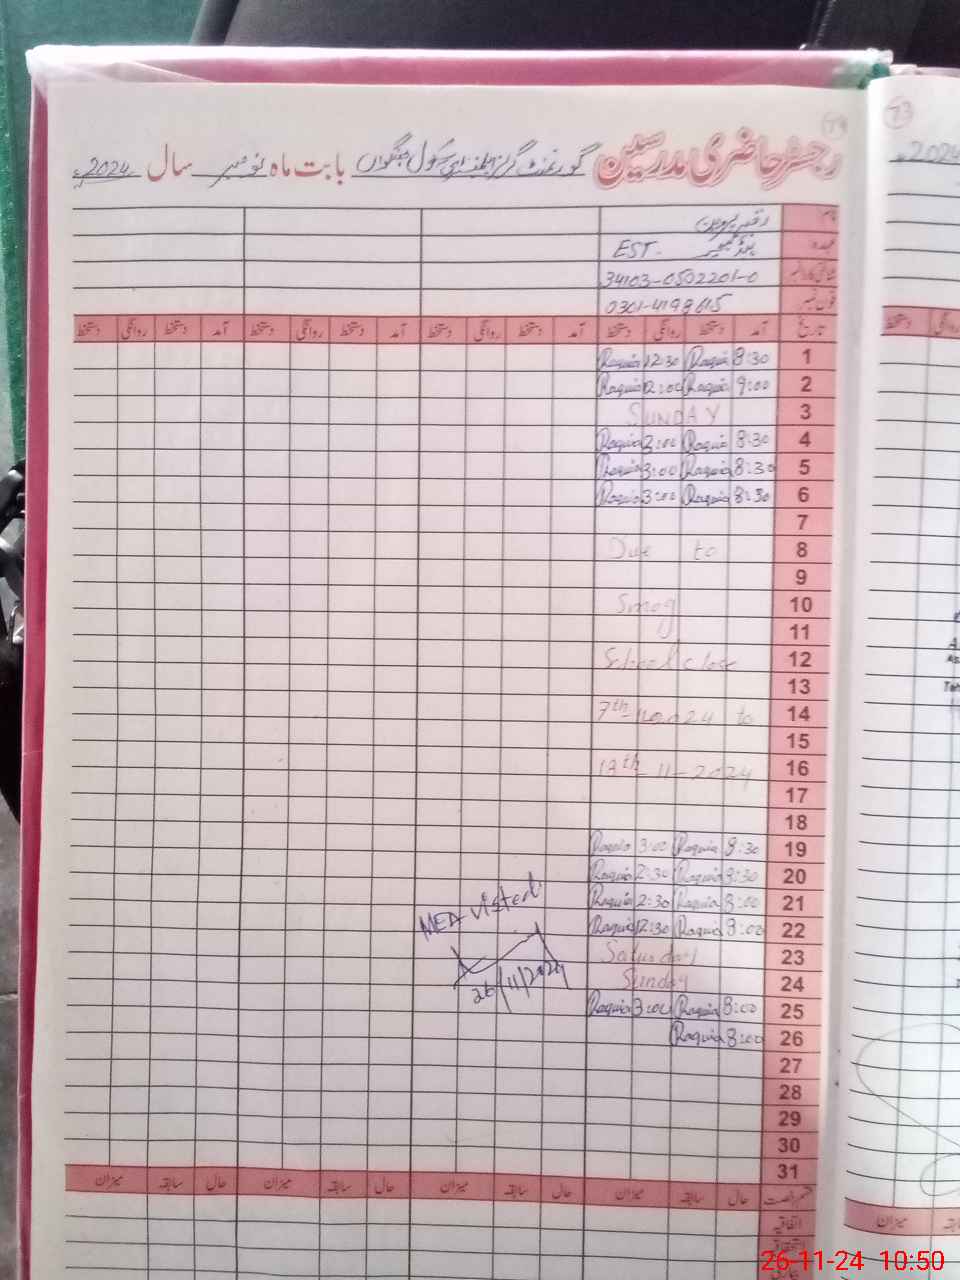 74
73
رجسٹر حاضری مدرسین گورنمنٹ گرلز ایلیمنٹری سکول بابت ماہ نومبر سال 2024ء
2024ء
نام
عہدہ EST.
شناختی کارڈ نمبر 34103-0502201-0
فون نمبر 0301-4198615
تاریخ آمد دستخط روانگی دستخط آمد دستخط روانگی دستخط آمد دستخط روانگی دستخط آمد دستخط روانگی دستخط
1 8:30 Raquia 12:30 Raquia
2 9:00 Raquia 12:00 Raquia
3 SUNDAY
4 8:30 Raquia 3:00 Raquia
5 8:30 Raquia 3:00 Raquia
6 8:30 Raquia 3:00 Raquia
7
8 Due to
9
10 Smog
11
12 School close
13
14 7th-11-2024 to
15
16 18th-11-2024
17
18
19 8:30 Raquia 3:00 Raquia
20 8:30 Raquia 2:30 Raquia
21 8:00 Raquia 2:30 Raquia
22 8:00 Raquia 12:30 Raquia
23 Saturday
24 Sunday
25 8:00 Raquia 3:00 Raquia
26 8:00 Raquia
27
28
29
30
31
MEA visted
26/11/2024
قسم رخصت حال سابقہ میزان حال سابقہ میزان حال سابقہ میزان حال سابقہ میزان
اتفاقیہ
استحقاقیہ
دستخط روانگی
میزان سابقہ
26-11-24 10:50